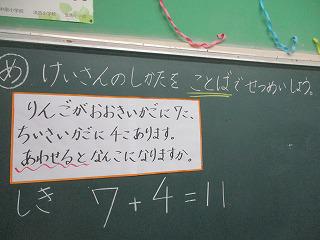 め けいさんのしかたを ことばでせつめいしよう。
りんごがおおきいかごに7こ、
ちいさいかごに4こあります。
あわせるとなんこになりますか。
しき 7+4=11